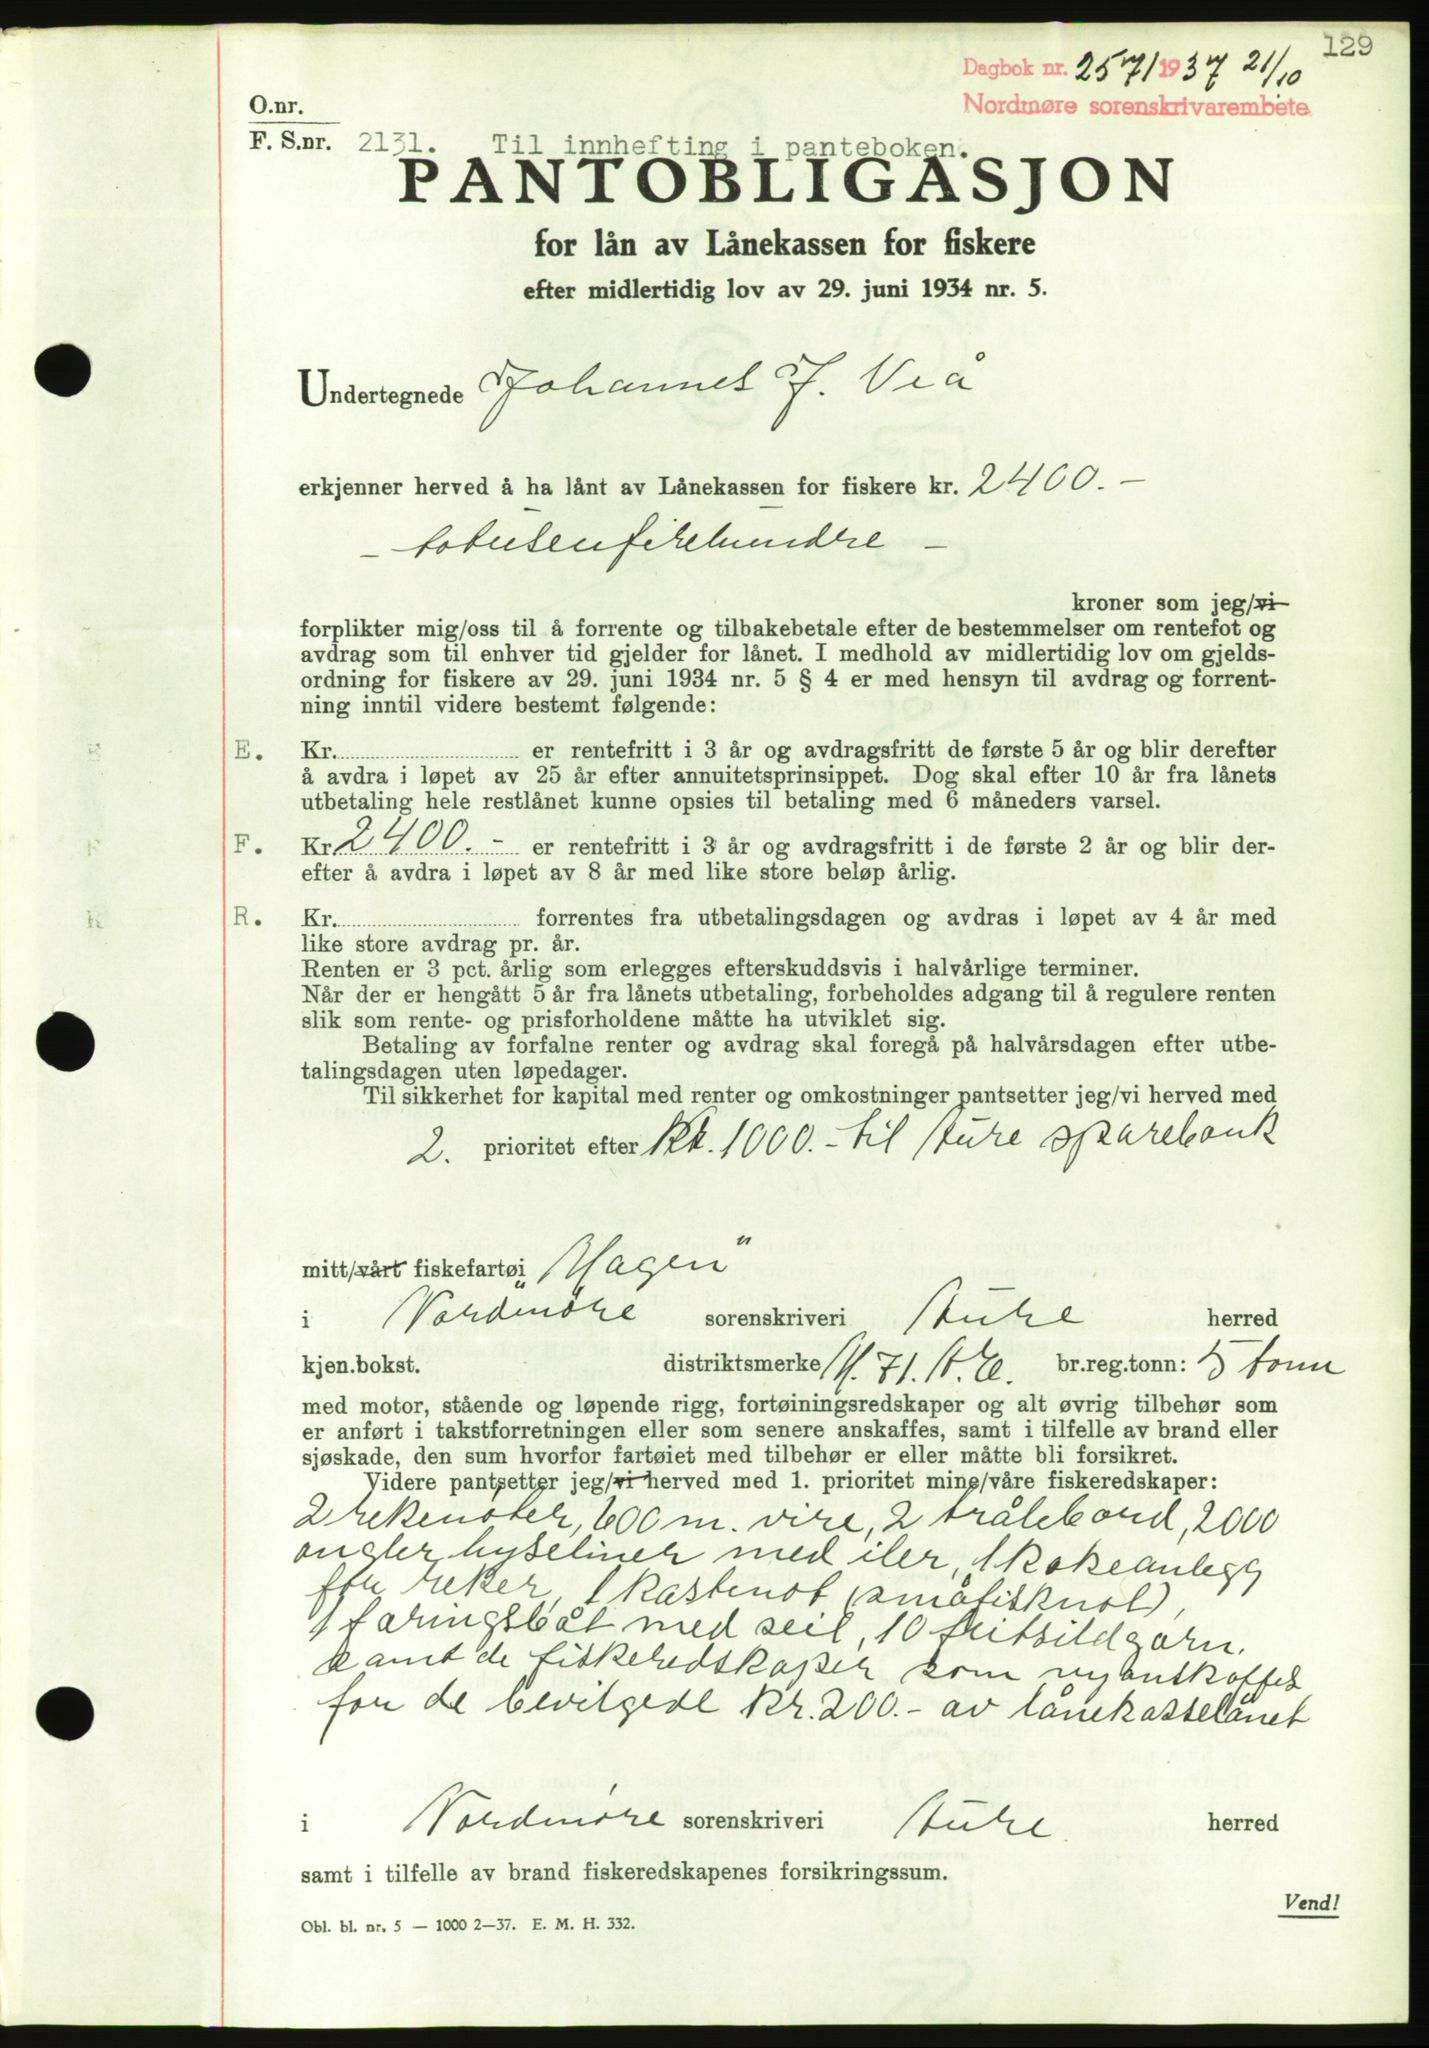 129
Dagbok nr. 2571 1937 21/10
Nordmøre sorenskrivarembete
O.nr.
F. S.nr. 2131. Til innhefting i panteboken.
PANTOBLIGASJON
for lån av Lånekassen for fiskere
efter midlertidig lov av 29. juni 1934 nr. 5.
Undertegnede Johannes J. Viå
erkjenner herved å ha lånt av Lånekassen for fiskere kr. 2400.-
- totusenfirehundre -
kroner som jeg/vi
forplikter mig/oss til å forrente og tilbakebetale efter de bestemmelser om rentefot og
avdrag som til enhver tid gjelder for lånet. I medhold av midlertidig lov om gjelds-
ordning for fiskere av 29. juni 1934 nr. 5 § 4 er med hensyn til avdrag og forrent-
ning inntil videre bestemt følgende:
E. Kr. er rentefritt i 3 år og avdragsfritt de første 5 år og blir derefter
å avdra i løpet av 25 år efter annuitetsprinsippet. Dog skal efter 10 år fra lånets
utbetaling hele restlånet kunne opsies til betaling med 6 måneders varsel.
F. Kr. 2400.- er rentefritt i 3 år og avdragsfritt i de første 2 år og blir der-
efter å avdra i løpet av 8 år med like store beløp årlig.
R. Kr. forrentes fra utbetalingsdagen og avdras i løpet av 4 år med
like store avdrag pr. år.
Renten er 3 pct. årlig som erlegges efterskuddsvis i halvårlige terminer.
Når der er hengått 5 år fra lånets utbetaling, forbeholdes adgang til å regulere renten
slik som rente- og prisforholdene måtte ha utviklet sig.
Betaling av forfalne renter og avdrag skal foregå på halvårsdagen efter utbe-
talingsdagen uten løpedager.
Til sikkerhet for kapital med renter og omkostninger pantsetter jeg/vi herved med
2. prioritet efter Kr. 1000.- til Aure sparebank
mitt/vårt fiskefartøi "Hagen"
i Nordmøre sorenskriveri Aure herred
kjen.bokst. distriktsmerke M. 71. A.E. br.reg.tonn: 5 tonn
med motor, stående og løpende rigg, fortøiningsredskaper og alt øvrig tilbehør som
er anført i takstforretningen eller som senere anskaffes, samt i tilfelle av brand eller
sjøskade, den sum hvorfor fartøiet med tilbehør er eller måtte bli forsikret.
Videre pantsetter jeg/vi herved med 1. prioritet mine/våre fiskeredskaper:
2 rekenøter, 600 m. vire, 2 trålebord, 2000
angler hyseliner med iler, 1 kokeanlegg
for reker, 1 kastenot (småfisknot),
1 færingsbåt med seil, 10 feitsildgarn,
samt de fiskeredskaper som nyanskaffes
for de bevilgede kr. 200.- av lånekasselånet
i Nordmøre sorenskriveri Aure herred
samt i tilfelle av brand fiskeredskapenes forsikringssum.
Vend!
Obl. bl. nr. 5 — 1000 2—37. E. M. H. 332.